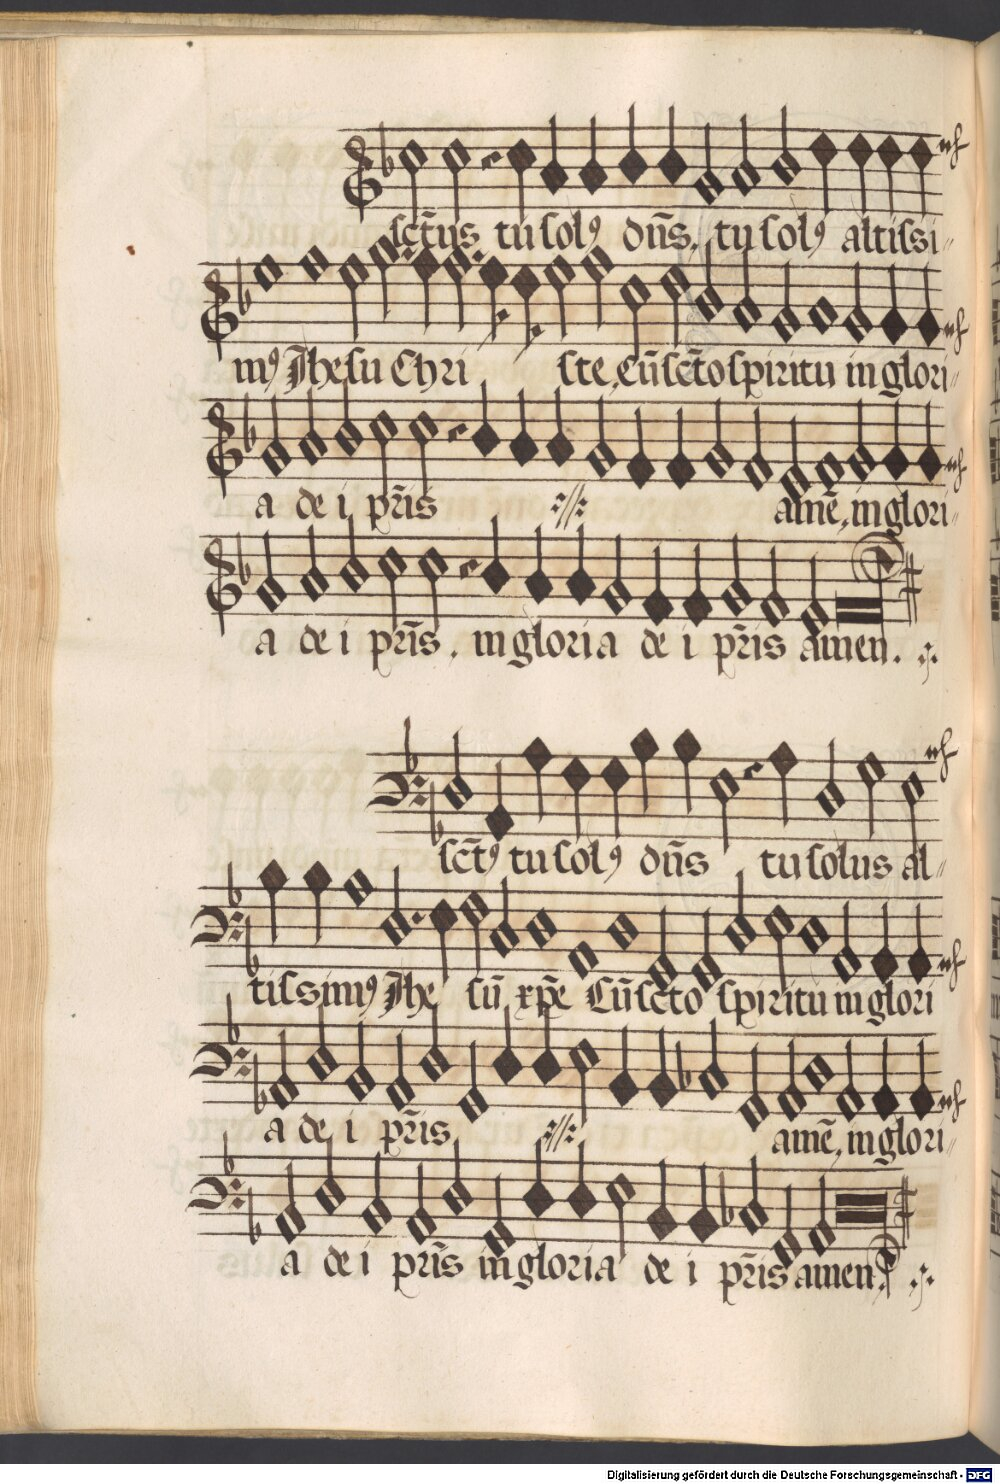 sct̄us tu solꝰ dn̄s, tu solꝰ altissi
mꝰ Jhesu Chri ste, Cū sct̄o spiritu in glori
a de i pr̄is amē, in glori
a de i pr̄is, in gloria de i pr̄is amen.
sct̄ꝰ tu solꝰ dn̄s tu solus al
tissimꝰ Jhe sū xp̄e Cū sct̄o spiritu in glori
a de i pr̄is, amē, in glori
a de i pr̄is in gloria de i pr̄is amen.
Digitalisierung gefördert durch die Deutsche Forschungsgemeinschaft - DFG